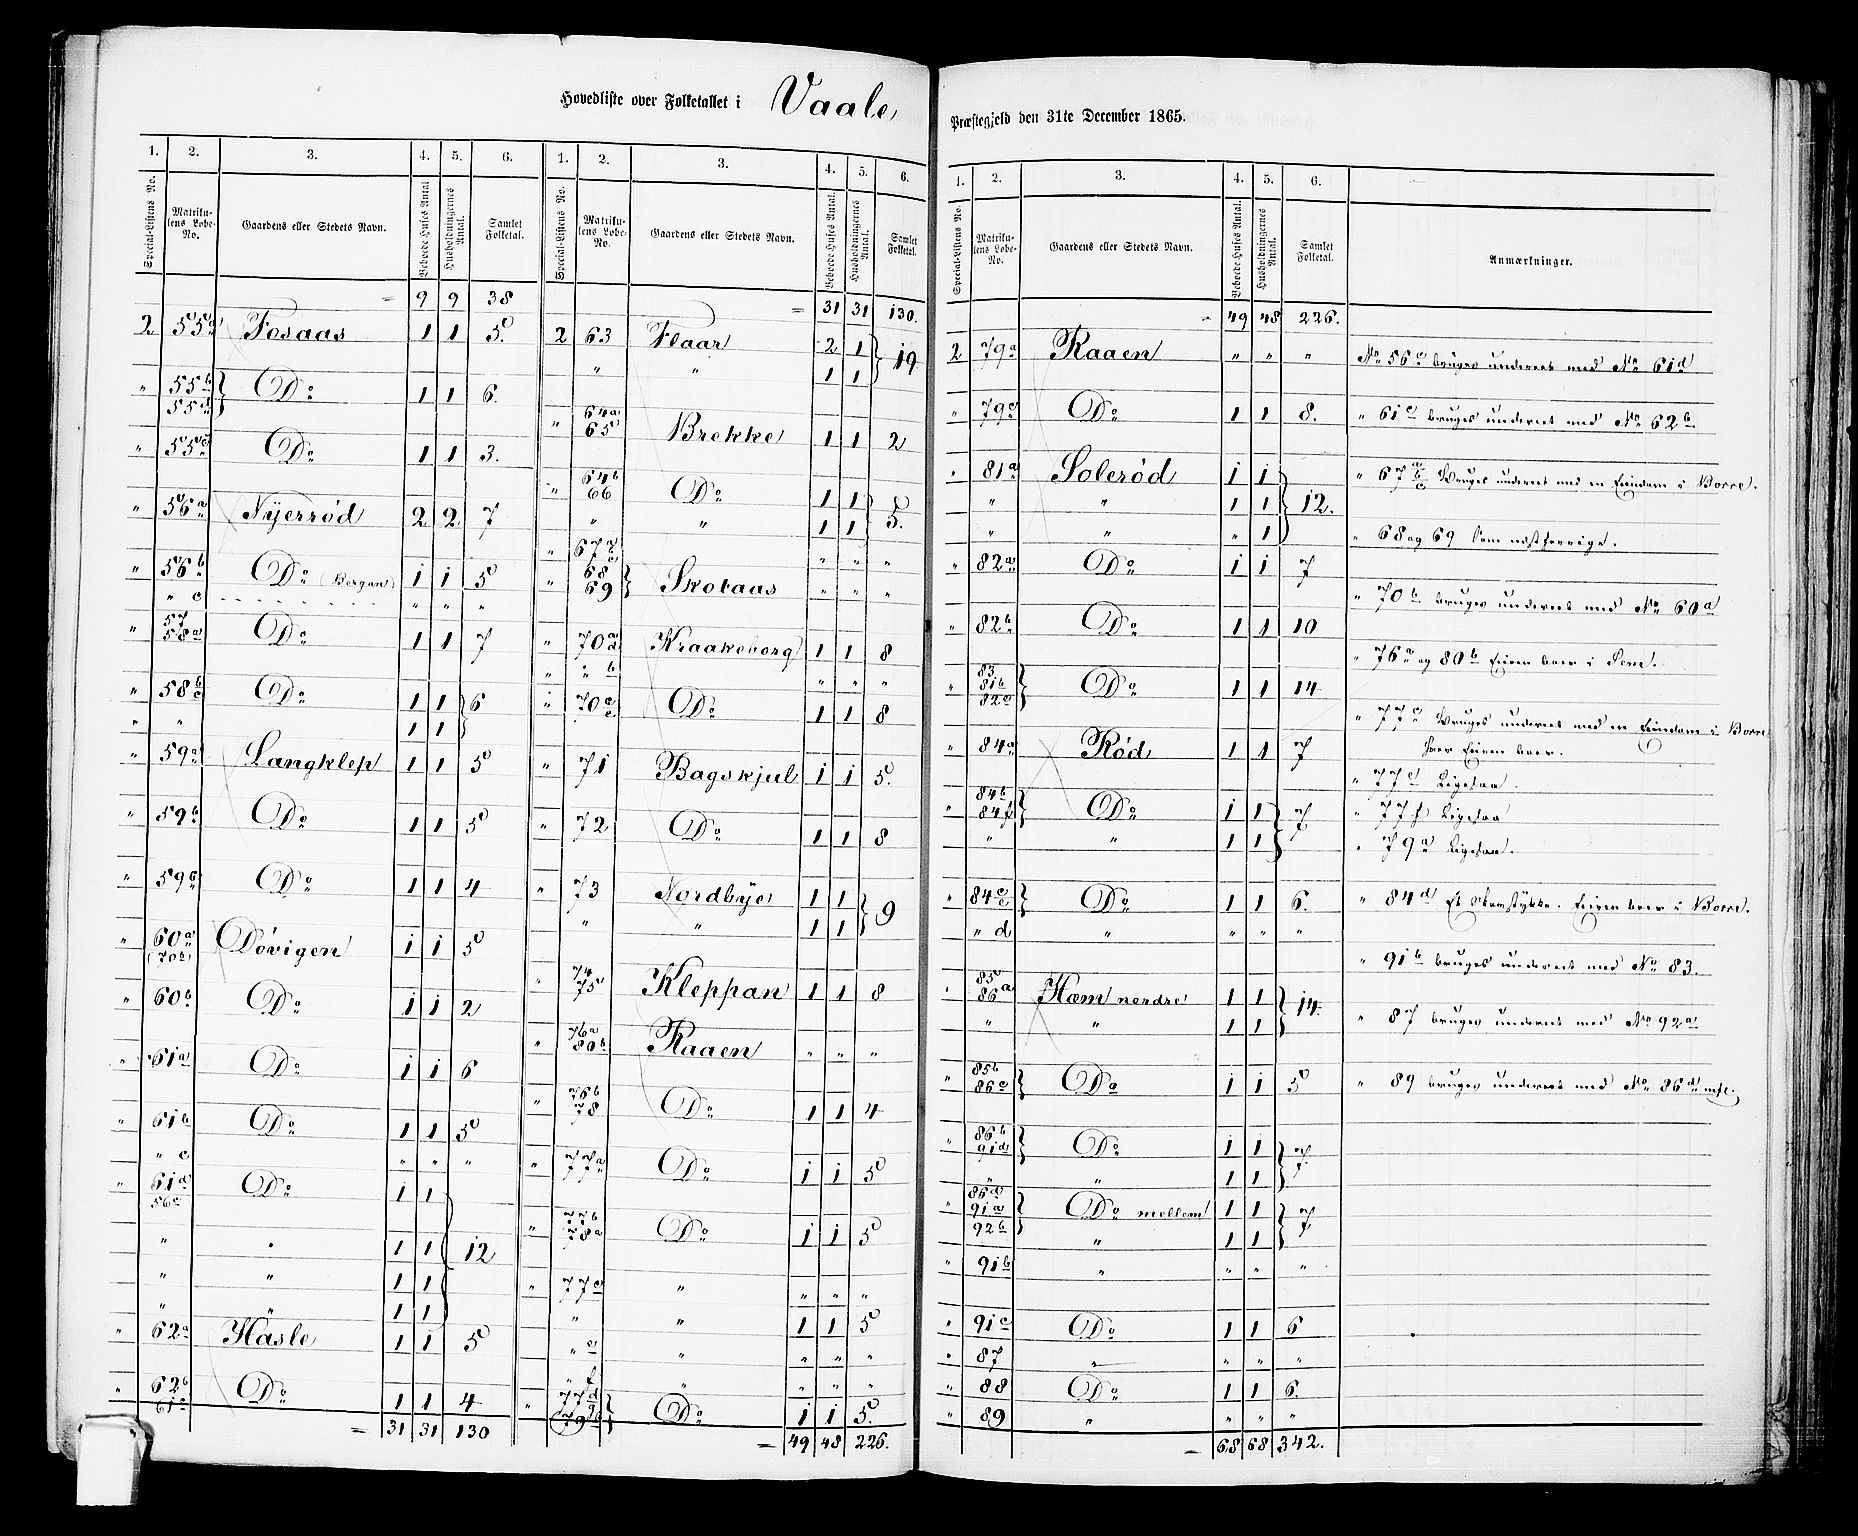 Hovedliste over Folketallet i Vaale Præstegjeld den 31te December 1865.
1. 2. 3. 4. 5. 6. 1. 2. 3. 4. 5. 6.
Special-Listens No. Matrikulens Løbe-No. Gaardens eller Stedets Navn. Beboede Huses Antal Husholdningernes Antal. Samlet Folketal. Special-Listens No. Matrikulens Løbe-No. Gaardens eller Stedets Navn. Beboede Huses Antal. Husholdningernes Antal. Samlet Folketal.
= 9 9 38
2 55a Fosaas 1 1 5.
" 55b 55d } Do 1 1 6.
" 55c Do 1 1 3.
" 56a Nyerrød 2 2 7
" 56b Do (Bergan) 1 1 5
" c " " "
" 57 58a Do 1 1 7
" 58b c Do 1 1 } 6
" " 1 1
" 59a Langklep 1 1 5
" 59b Do 1 1 5
" 59c Do 1 1 4
" 60a (70b) Døvigen 1 1 5
" 60b Do 1 1 2
" 61a Do 1 1 6
" 61b Do 1 1 5
" c " " "
" 61d 56c Do 1 1 } 12
" " 1 1
" " 1 1
" " 1 1
" 62a Hasle 1 1 5
" 62b 61c Do 1 1 4
= 31 31 130
= 31 31 130.
2 63 Flaar 2 1 } 19
" " 1 1
" 64a 65 Brekke 1 1 2
" 64b 66 Do 1 1 } 5.
" " 1 1
" 67a c " " "
" 68 69 } Skotaas " " "
" 70a Kraakeborg 1 1 8
" " b " " "
" 70 c Do 1 1 8
" 71 Bagskjul 1 1 5.
" 72 Do 1 1 8
" 73 Nordbye 1 1 } 9
" " 1 1
" 74 75 Kleppan 1 1 8
" 76a 80b Raaen " " "
" 76b 78 Do 1 1 4
" 77a Do 1 1 5
" 77b 78a Do 1 1 5
" 77c " " " "
" " 1 1 5
" e " " " "
" f " " " "
" 77d 79b } Do 1 1 5.
= 49 48 226.
1. 2. 3. 4. 5. 6.
Special-Listens No. Matrikulens Løbe-No. Gaardens eller Stedets Navn. Beboede Huses Antal. Husholdningernes Antal. Samlet Folketal. Anmærkninger.
= 49 48 226.
2 79a Raaen " " " No 56c bruges underet med No 61d
" 79c Do 1 1 8. " 61c bruges underet med No 62b
" 81a Solerød 1 1 } 12. " 67a b c Bruges underet med en Eiendom i Borre.
" " 1 1
" " " 1 " 68 og 69 Som næstforrige.
" 82a Do 1 1 7
" 70b bruges underet med No 60a
" 82b Do 1 1 10
" 76a og 80b Eieren boer i Sem.
" 83 81b 82c } Do 1 1 14
" 77c Bruges underet med en Eiendom i Borre
hvor Eieren boer.
" 84a Rød 1 1 7
" 77e Ligesaa.
" 84b 84f } Do 1 1 } 7 " 77f Ligesaa
" " 1 1 " 79a Ligesaa.
" 84c e } Do 1 1 6. " 84d Et Skovstykke. Eieren boer i Borre.
" d " " " "
" 91b bruges underet med No 83.
" 85 86a Hæm nerdre 1 1 } 14. " 87 bruges underet med No 92a
" " 1 1
" 85b 86c } Do 1 1 5 " 89 bruges underet med No 86d mfl.
" 86b 91d } Do 1 1 } 7.
" " 1 1
" 86d 91a 92b } Do mellem 1 1 } 7
" 1 1
" 91b " " " "
" 91c Do 1 1 6
" 87 " " " "
" 88 Do 1 1 6.
" 89 " " " "
= 68 68 342.